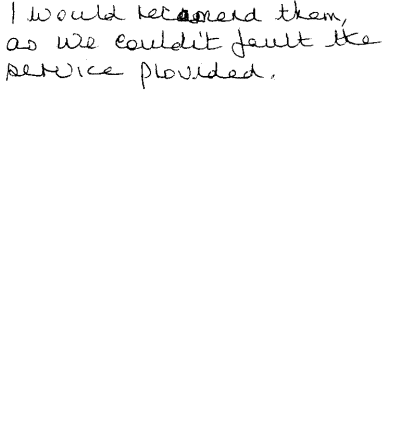 I would recomend them,
as we couldn't fault the
service provided.